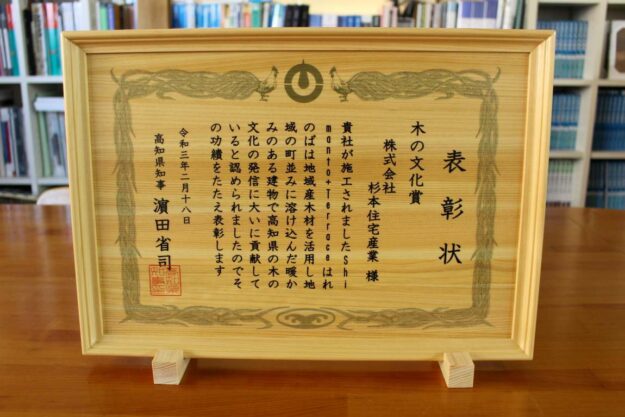 表彰状
木の文化賞
株式会社
杉本住宅産業 様
貴社が施工されましたShi
manto+Terraceはれ
のばは地域産木材を活用し地
域の町並みに溶け込んだ暖か
みのある建物で高知県の木の
文化の発信に大いに貢献して
いると認められましたのでそ
の功績をたたえ表彰します
令和三年二月十八日
高知県知事 濵田省司